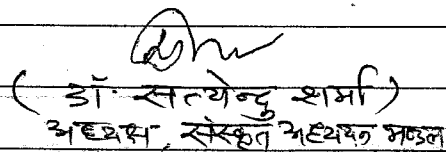 ( डॉ. सत्येन्दु शर्मा )
अध्यक्ष, संस्कृत अध्ययन मण्डल